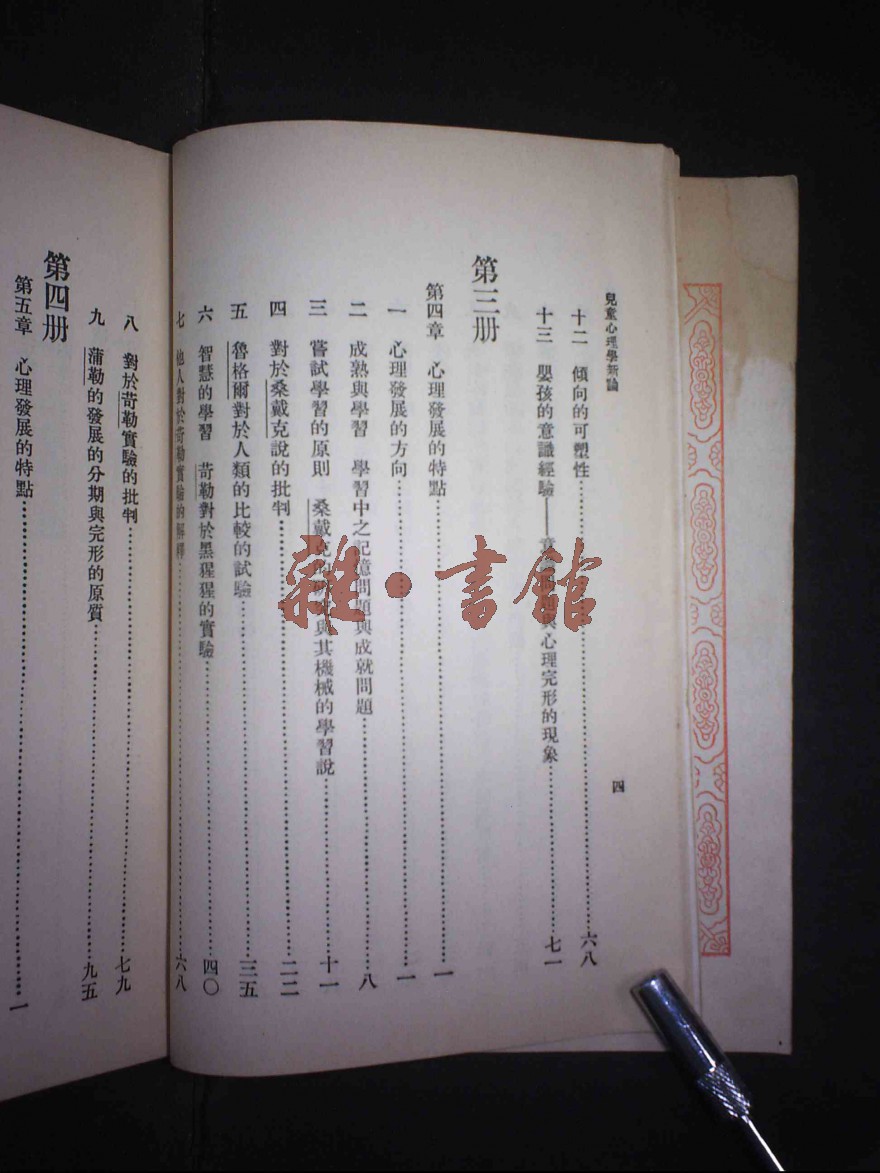 兒童心理學新論
四
十二 傾向的可塑性……六八
十三 嬰孩的意識經驗——意 與心理完形的現象……七一
第三册
第四章 心理發展的特點……一
一 心理發展的方向……一
二 成熟與學習 學習中之記憶問題與成就問題……八
三 嘗試學習的原則 桑戴克的 與其機械的學習說……十一
四 對於桑戴克說的批判……二二
五 魯格爾對於人類的比較的試驗……三五
六 智慧的學習 苛勒對於黑猩猩的實驗……四〇
七 他人對於苛勒實驗的解釋……六八
八 對於苛勒實驗的批判……七九
九 蒲勒的發展的分期與完形的原質……九五
第四册
第五章 心理發展的特點……一
雜·書館